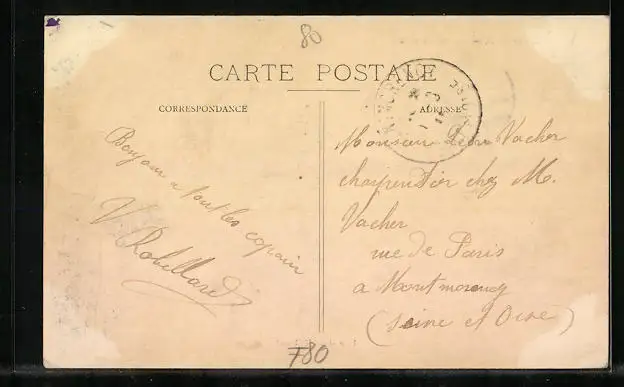 80
CARTE POSTALE
CORRESPONDANCE
ADRESSE
Bonjour a tout les copain
V Robillard
Monsieur Léon Vacher
charpentier chez M.
Vacher
rue de Paris
a Montmorency
(Seine et Oise)
780